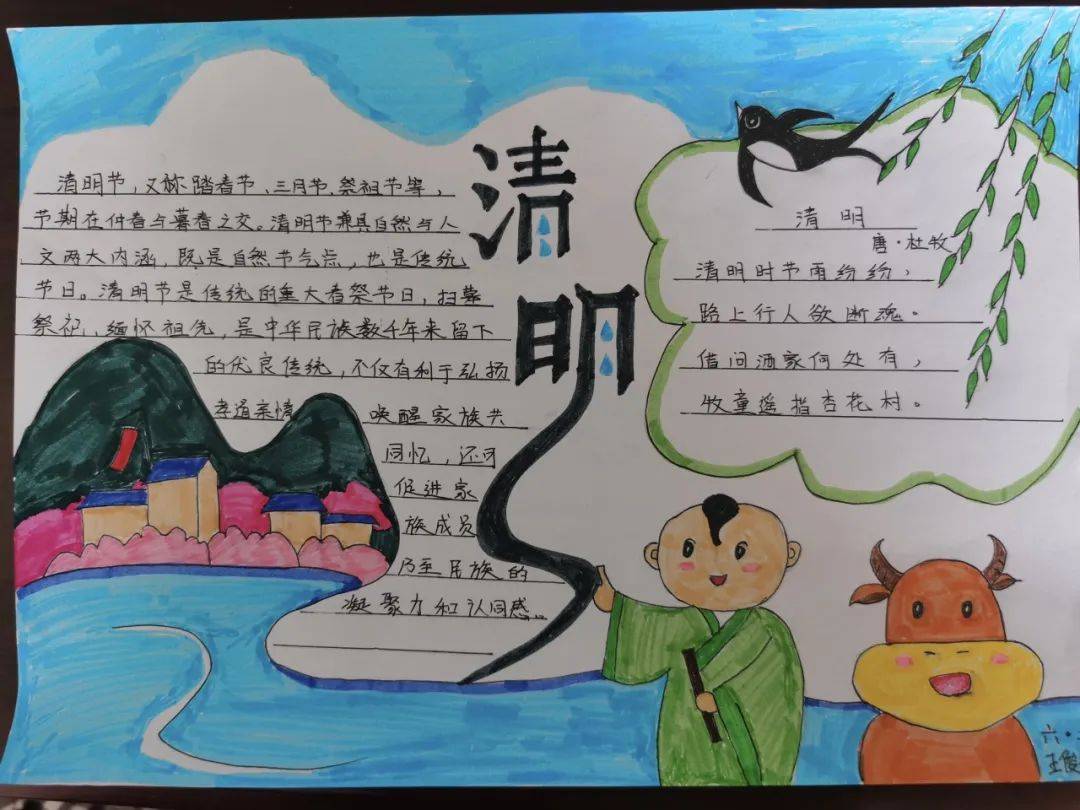 清明
清明节，又称踏春节、三月节、祭祖节等，
节期在仲春与暮春之交。清明节兼具自然与人
文两大内涵，既是自然节气点，也是传统
节日。清明节是传统的重大春祭节日，扫墓
祭祀、缅怀祖先，是中华民族数千年来留下
的优良传统，不仅有利于弘扬
孝道亲情 唤醒家族共
同忆，还可
促进家
族成员
乃至民族的
凝聚力和认同感。
清明
唐·杜牧
清明时节雨纷纷，
路上行人欲断魂。
借问酒家何处有，
牧童遥指杏花村。
六·
王俊